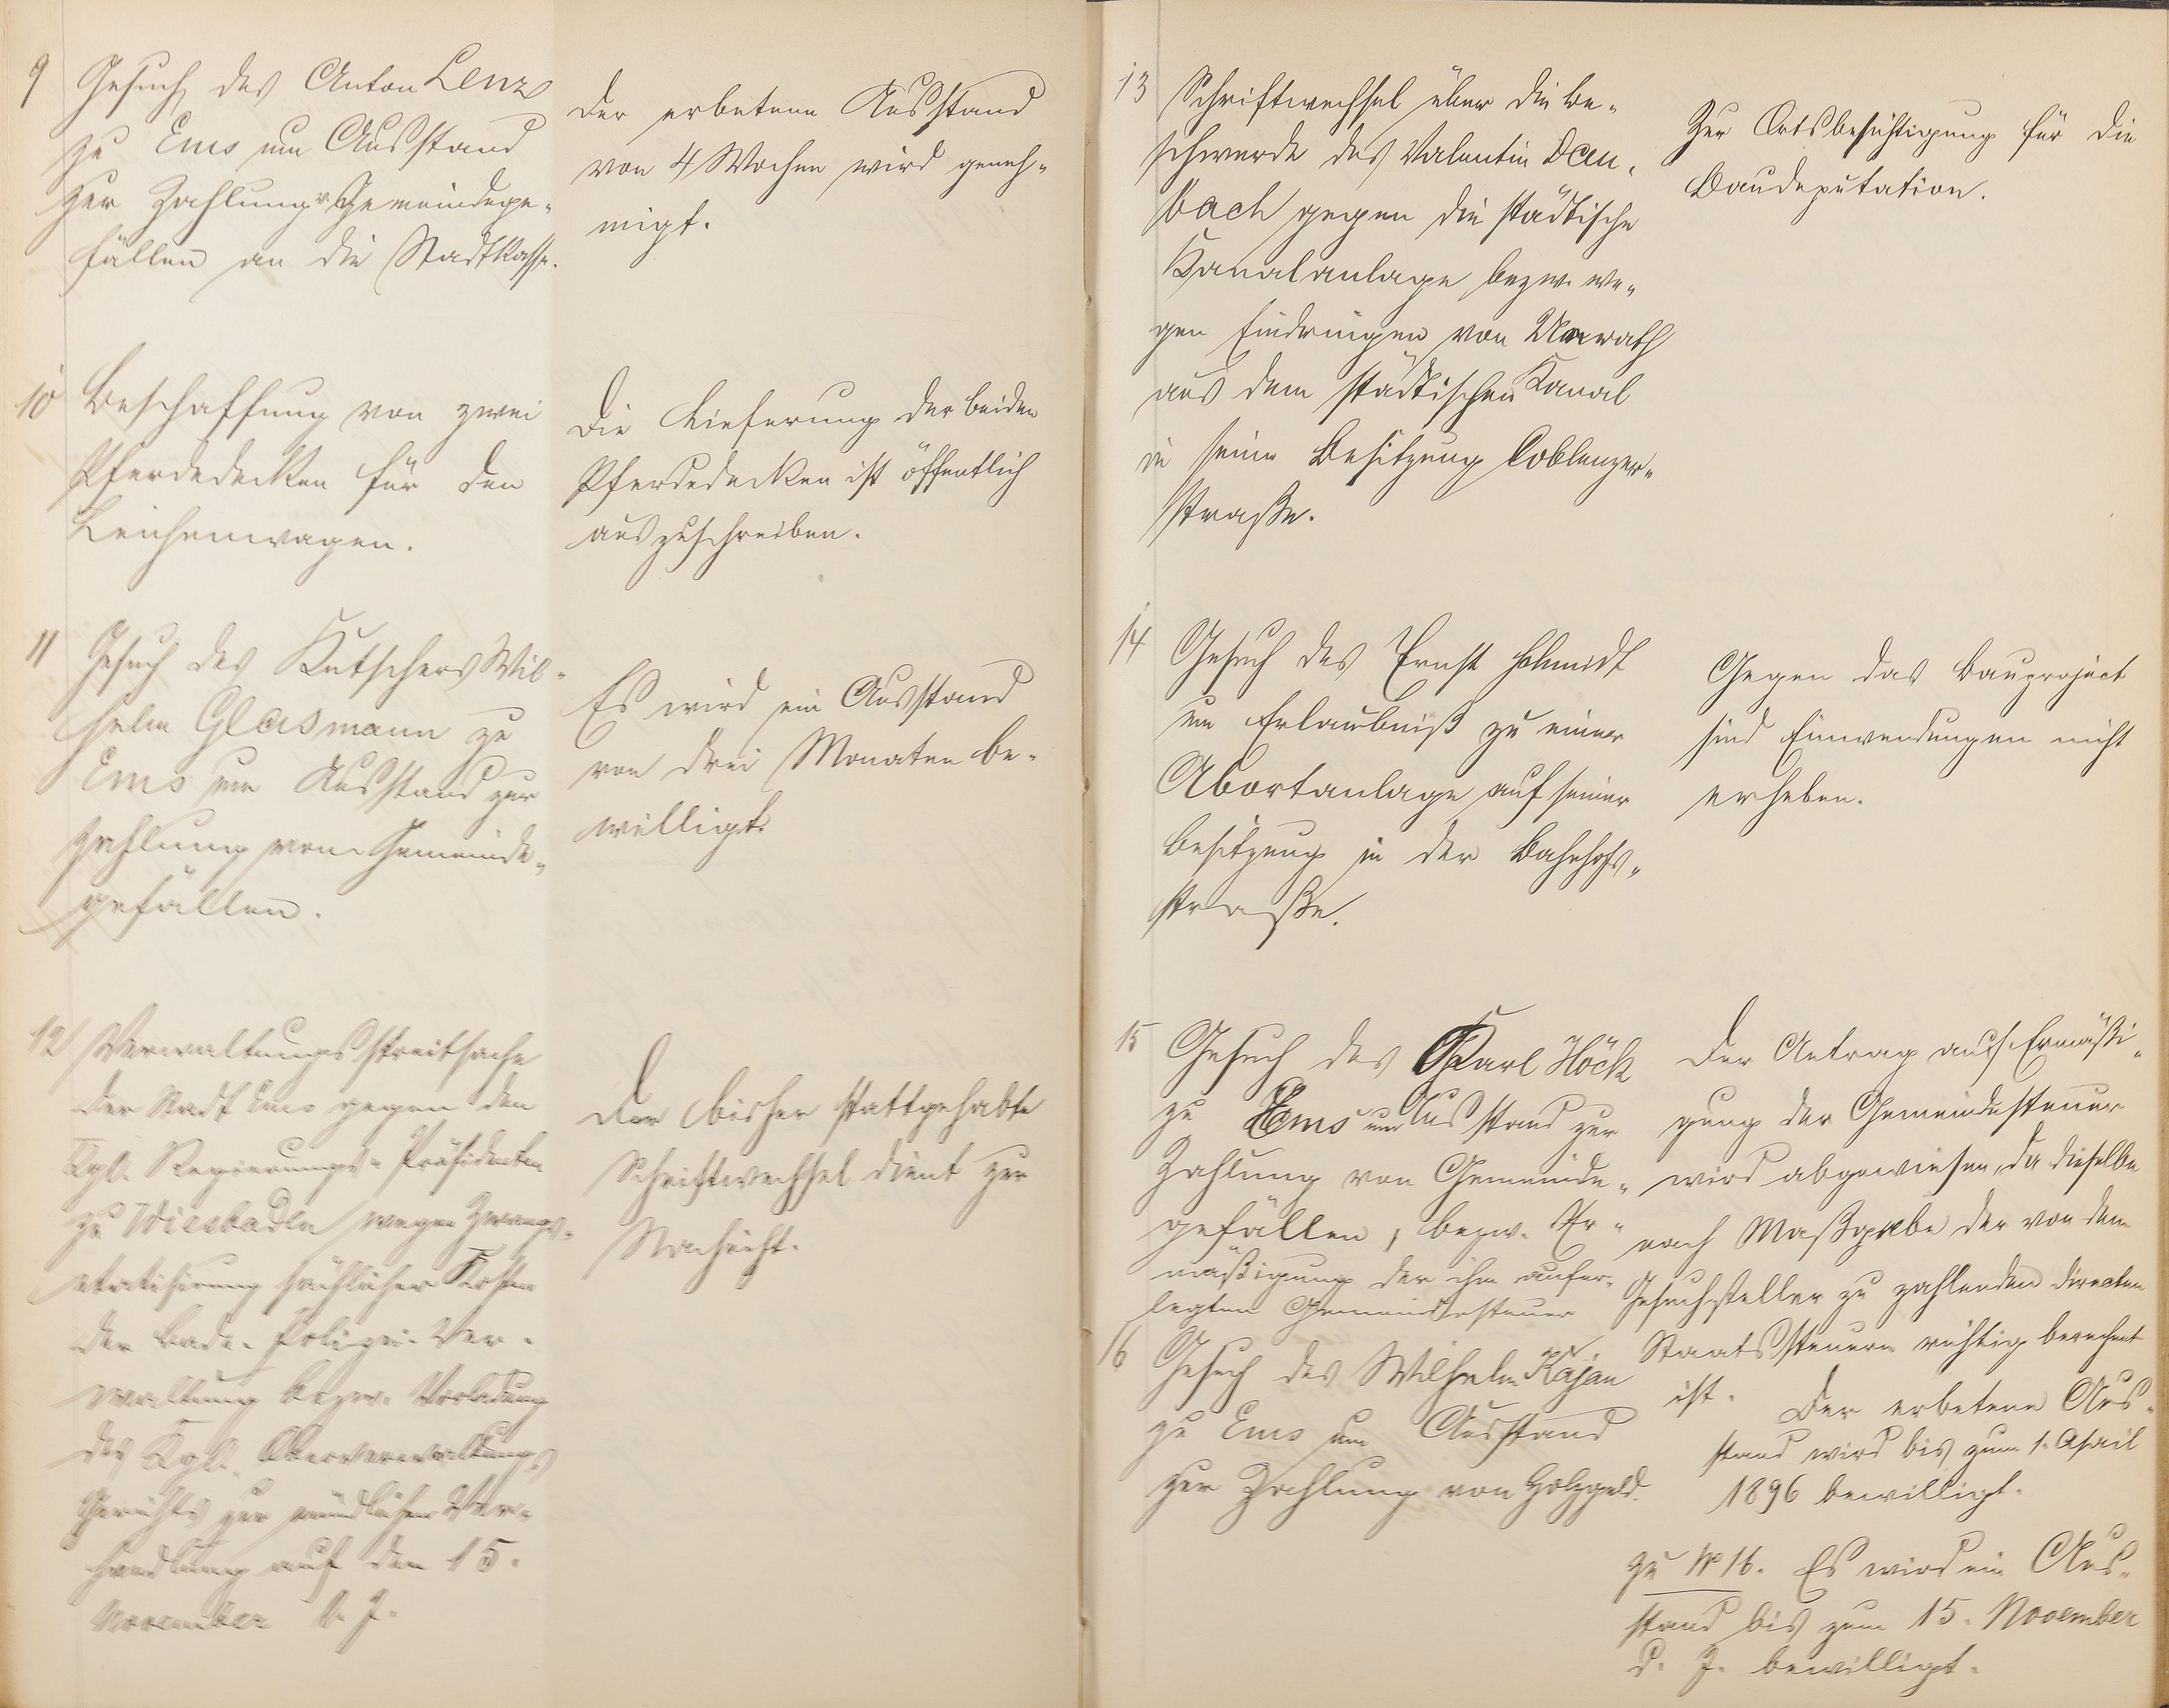 9 Gesuch des Anton Lenz
zu Ems um Ausstand
zur Zahlung v. Gemeindege-
fällen an die Stadtkasse.
Der erbetene Ausstand
von 4 Wochen wird geneh-
migt.
10 Beschaffung von zwei
Pferdedecken für den
Leichenwagen.
Die Lieferung der beiden
Pferdedecken ist öffentlich
auszuschreiben.
11 Gesuch des Kutschers Wil-
helm Glasmann zu
Ems um Ausstand zur
Zahlung von Gemeinde-
gefällen.
Es wird ein Ausstand
von drei Monaten be-
willigt.
12 Verwaltungsstreitsache
der Stadt Ems gegen den
Kgl. Regierungs-Präsidenten
zu Wiesbaden wegen Zwangs-
etatisirung sächlicher Kosten
der Bade-Polizei-Ver-
waltung bezw. Vorladung
des Kgl. Oberverwaltungs
Gerichts zur mündlichen Ver-
handlung auf den 15.
November d. J.
Der bisher stattgehabte
Schriftwechsel dient zur
Nachricht.
13 Schriftwechsel über die Be-
schwerde des Valentin Dau-
bach gegen die städtische
Kanalanlage bezw. we-
gen Eindringen von Unrath
aus dem städtischen Kanal
in seine Besitzung Coblenzer-
straße.
Zur Ortsbesichtigung für die
Baudeputation.
14 Gesuch des Ernst Schmidt
um Erlaubniß zu einer
Abortanlage auf seiner
Besitzung in der Bahnhofs-
straße.
Gegen das Bauproject
sind Einwendungen nicht
erheben.
15 Gesuch des Karl Höck
zu Ems um Ausstand zur
Zahlung von Gemeinde-
gefällen, bezw. Er-
mäßigung der ihm aufer-
legten Gemeindesteuer
Der Antrag auf Ermäßi-
gung der Gemeindesteuer
wird abgewiesen, da dieselbe
nach Maßgabe der von dem
Gesuchsteller zu zahlenden directen
Staatssteuern richtig berechnet
ist. Der erbetene Aus-
stand wird bis zum 1. April
1896 bewilligt.
16 Gesuch des Wilhelm Kajan
zu Ems um Ausstand
zur Zahlung von Holzgeld.
Zu № 16. Es wird ein Aus-
stand bis zum 15. November
d. J. bewilligt.